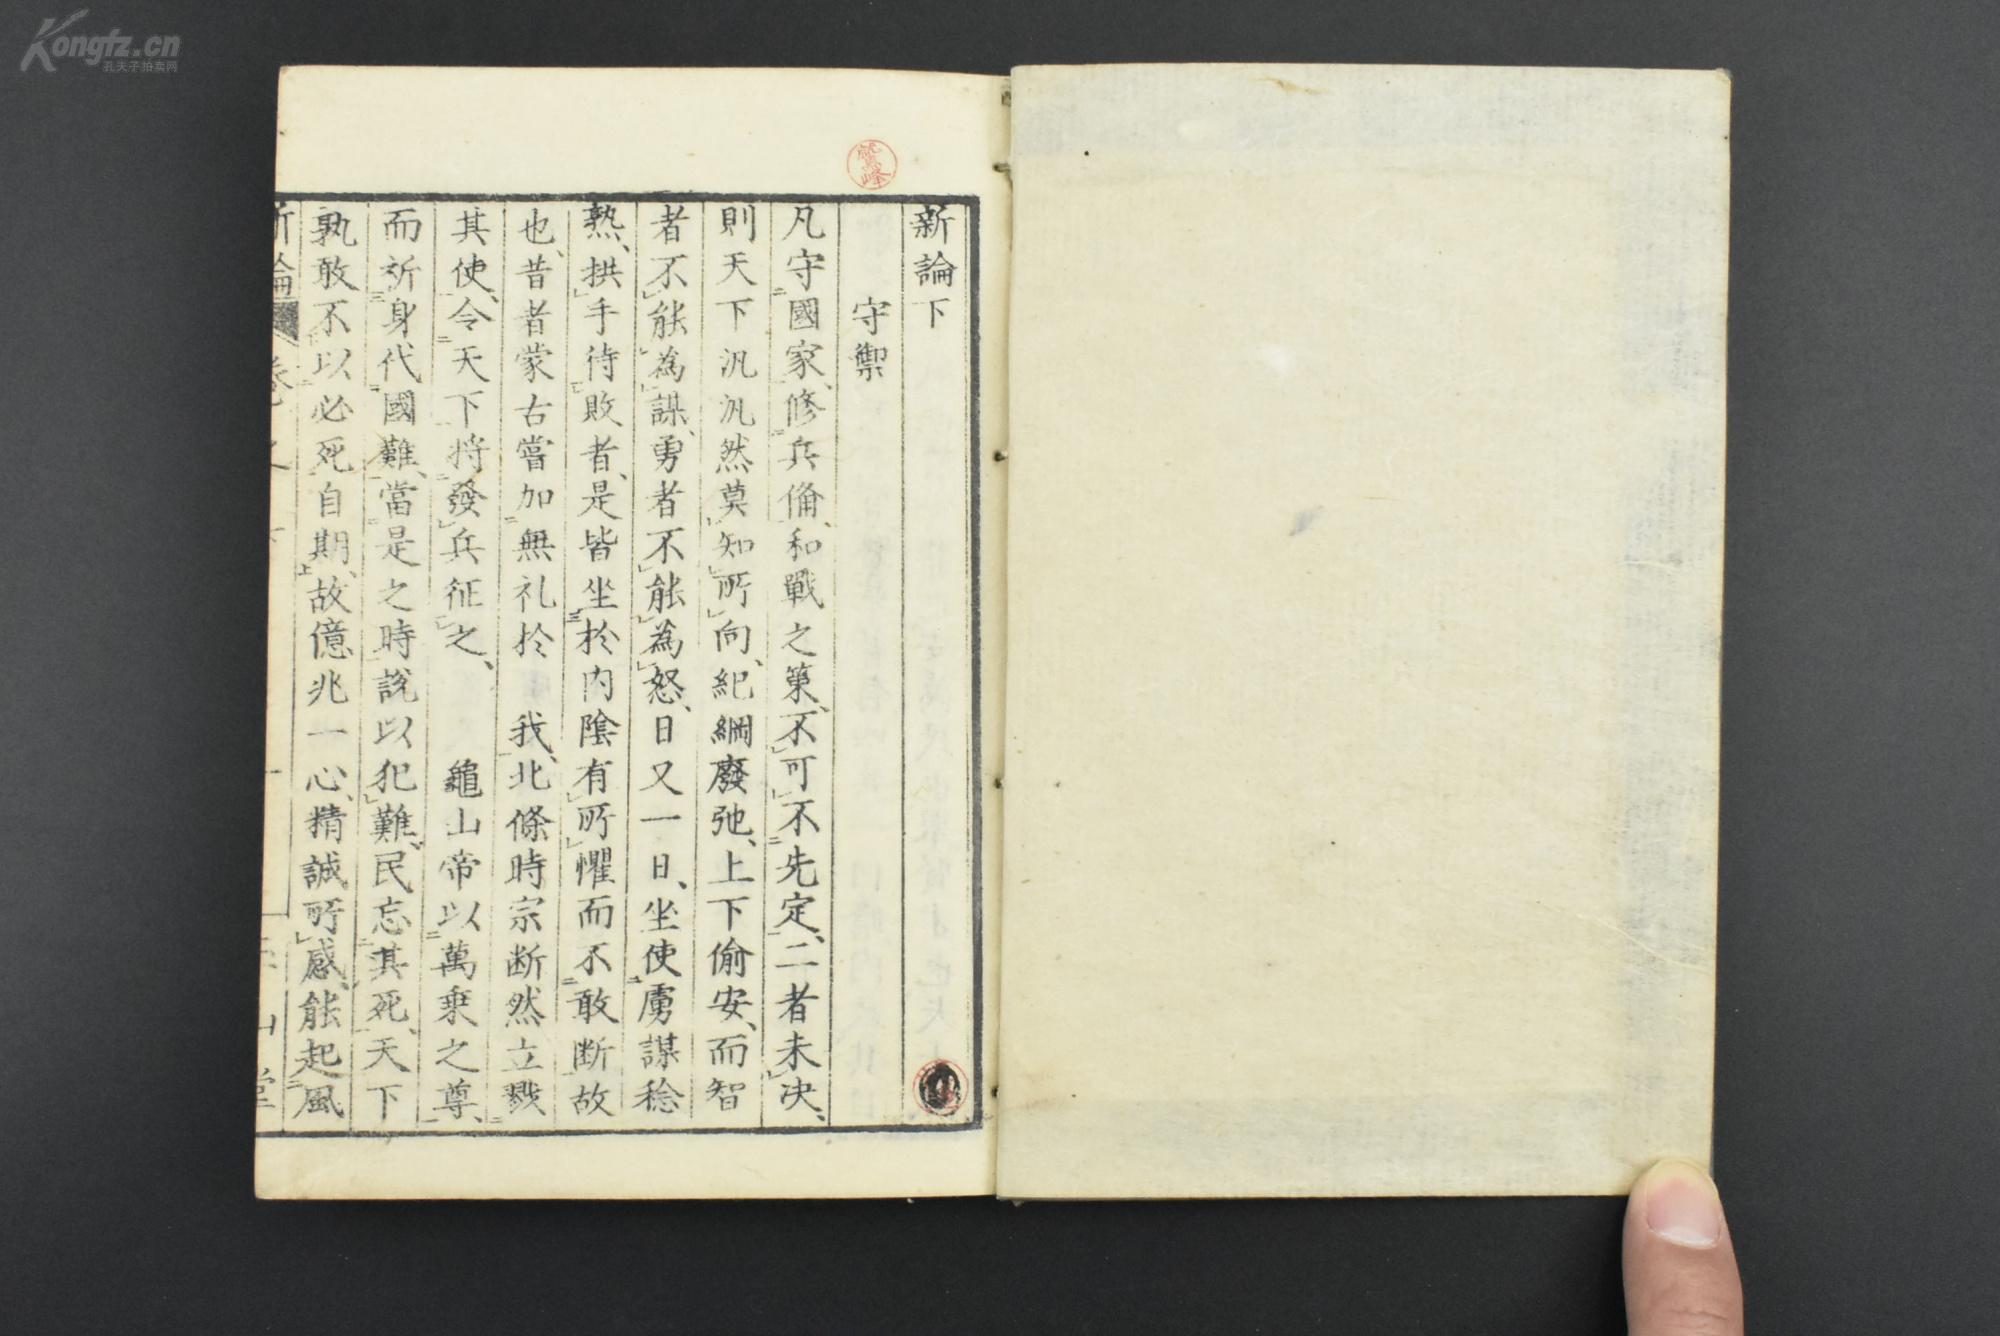 Kongfz.cn
孔夫子拍卖网
鷲峰
新論下
守禦
凡守國家、修兵備、和戰之策、不可不先定、二者未决、
則天下汎汎然莫知所向、紀綱廢弛、上下偷安、而智
者不能為謀、勇者不能為怒、日又一日、坐使虜謀稔
熟、拱手待敗者、是皆坐於内陰有所懼而不敢断故
也、昔者蒙古嘗加無礼於我、北條時宗断然立戮
其使、令天下將發兵征之、龜山帝以萬乗之尊、
而祈身代國難、當是之時説以犯難、民忘其死、天下
孰敢不以必死自期、故億兆一心、精誠所感、能起風
新論